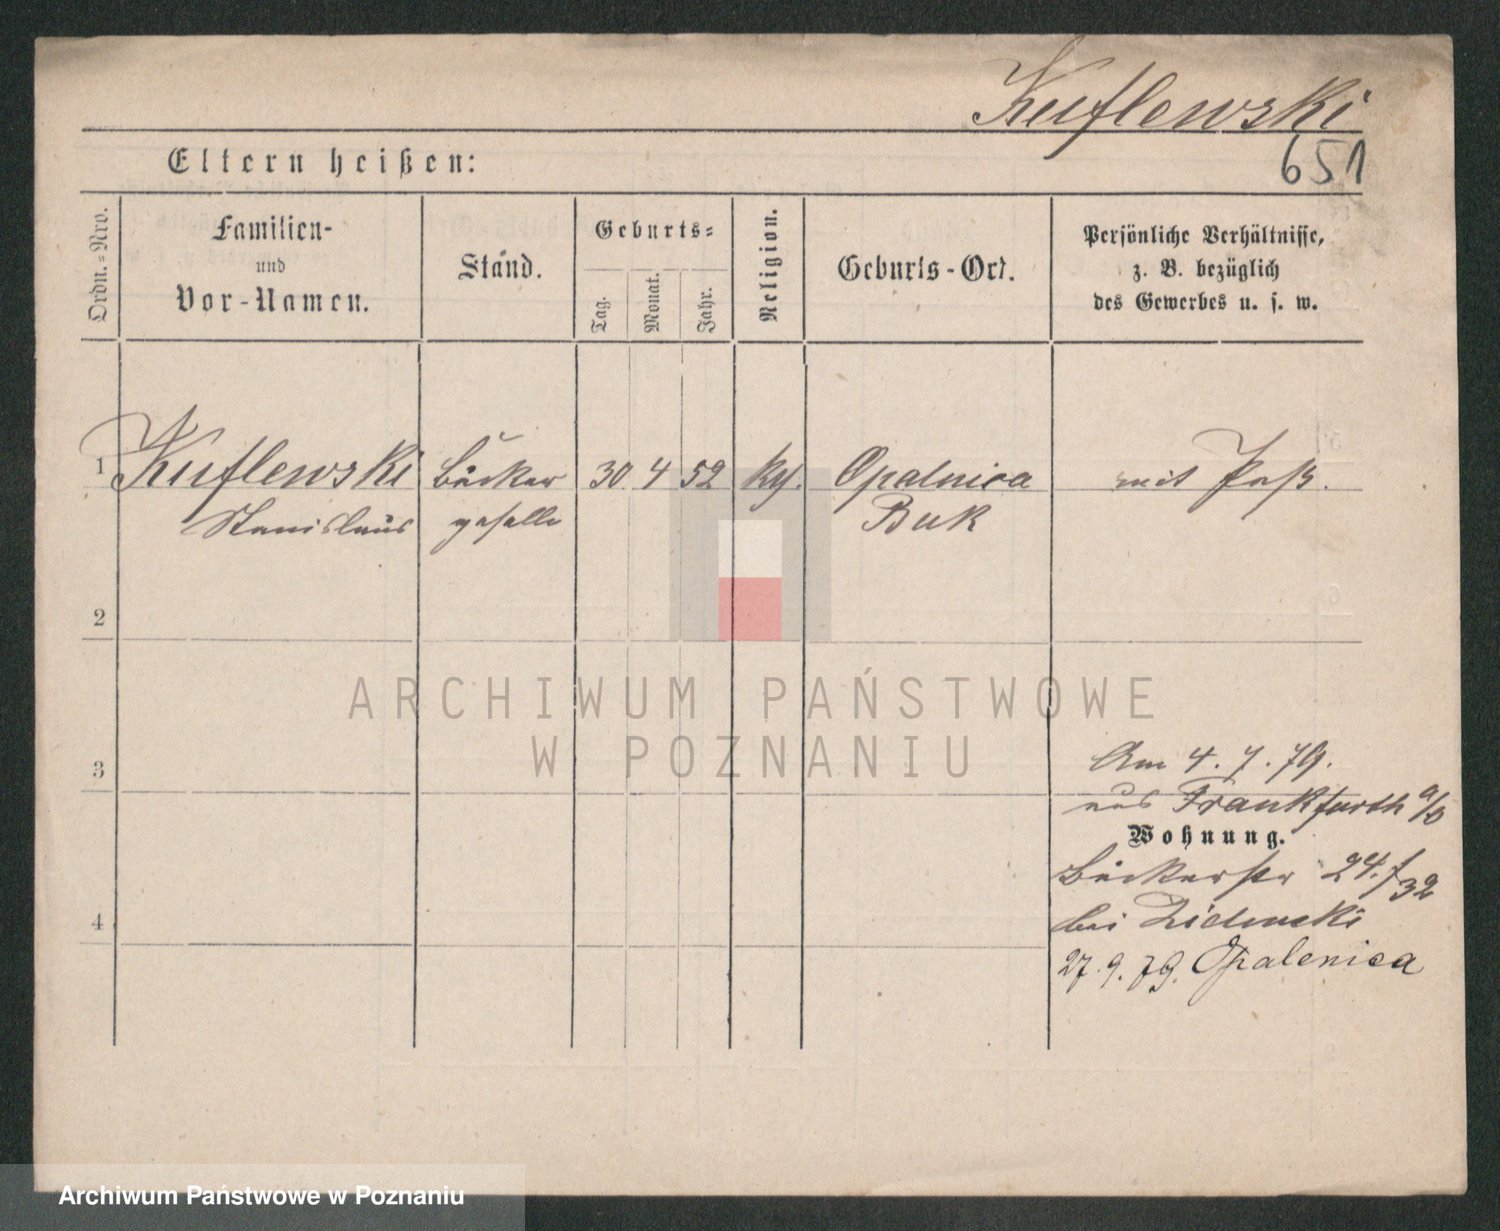 Kuflewski
651
Eltern heißen:
Ordn.-Nro.
Familien-
und
Vor-Namen.
Stand.
Geburts-
Tag.
Monat.
Jahr.
Religion.
Geburts-Ort.
Persönliche Verhältnisse,
z. B. bezüglich
des Gewerbes u. s. w.
1 Kuflewski Bäcker 30 4 52 Opalnica mit Paß.
Stanislaus geselle Buk
2
ARCHIWUM PAŃSTWOWE
W POZNANIU
3
Am 4. 7. 79.
aus Frankfurth a/O
Wohnung.
Bäckerstr 24.
4
bei
27. 9. 79. Opalenica
Archiwum Państwowe w Poznaniu